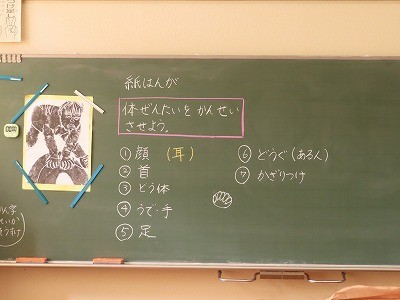 紙はんが
体ぜんたいを かんせい
させよう。
① 顔 (耳)
② 首
③ どう体
④ うで・手
⑤ 足
⑥ どうぐ(ある人)
⑦ かざりつけ